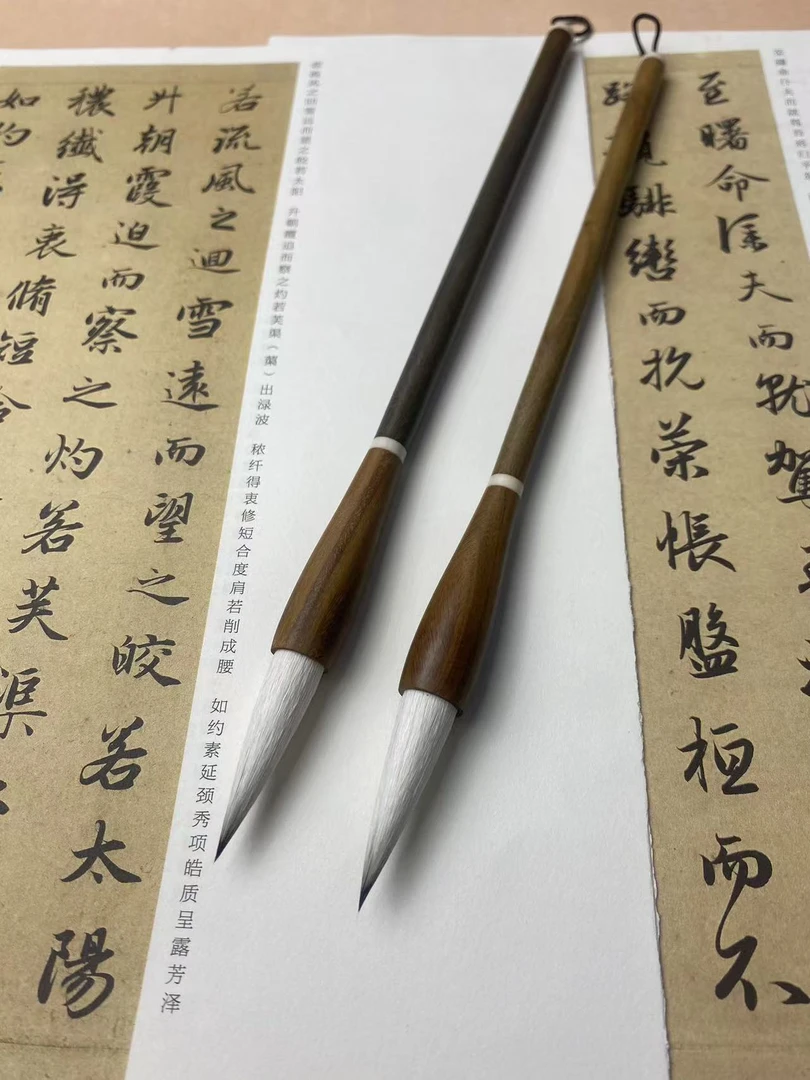 至曙命僕夫而就駕
路攬騑轡而抗策悵盤桓而不
若流风之回雪远而望之皎若太阳 升朝霞迫而察之灼若芙渠（蕖）出渌波 秾纤得衷修短合度肩若削成腰 如约素延颈秀项皓质呈露芳泽
若流風之迴雪遠而望之皎若太陽
升朝霞迫而察之灼若芙渠
穠纖得衷脩短合
如約